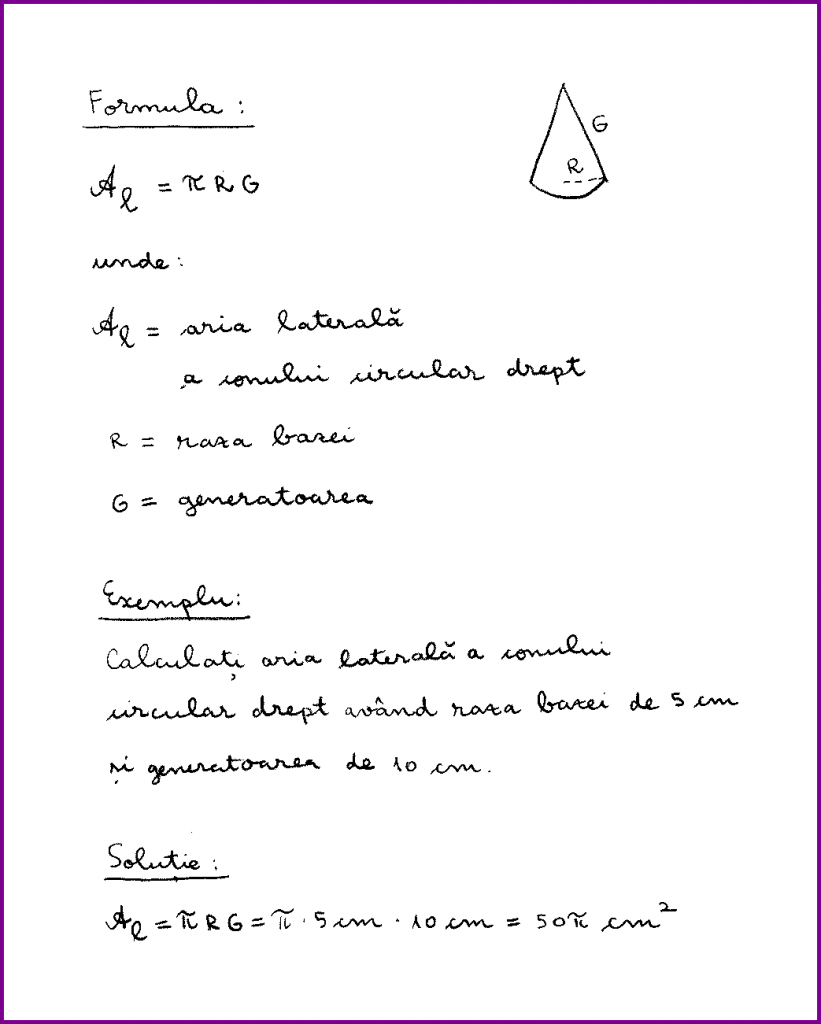 Formula :
G
R
A_l = π R G
unde :
A_l = aria laterală
a conului circular drept
R = raza bazei
G = generatoarea
Exemplu:
Calculați aria laterală a conului
circular drept având raza bazei de 5 cm
și generatoarea de 10 cm.
Solutie :
A_l = π R G = π · 5 cm · 10 cm = 50π cm²